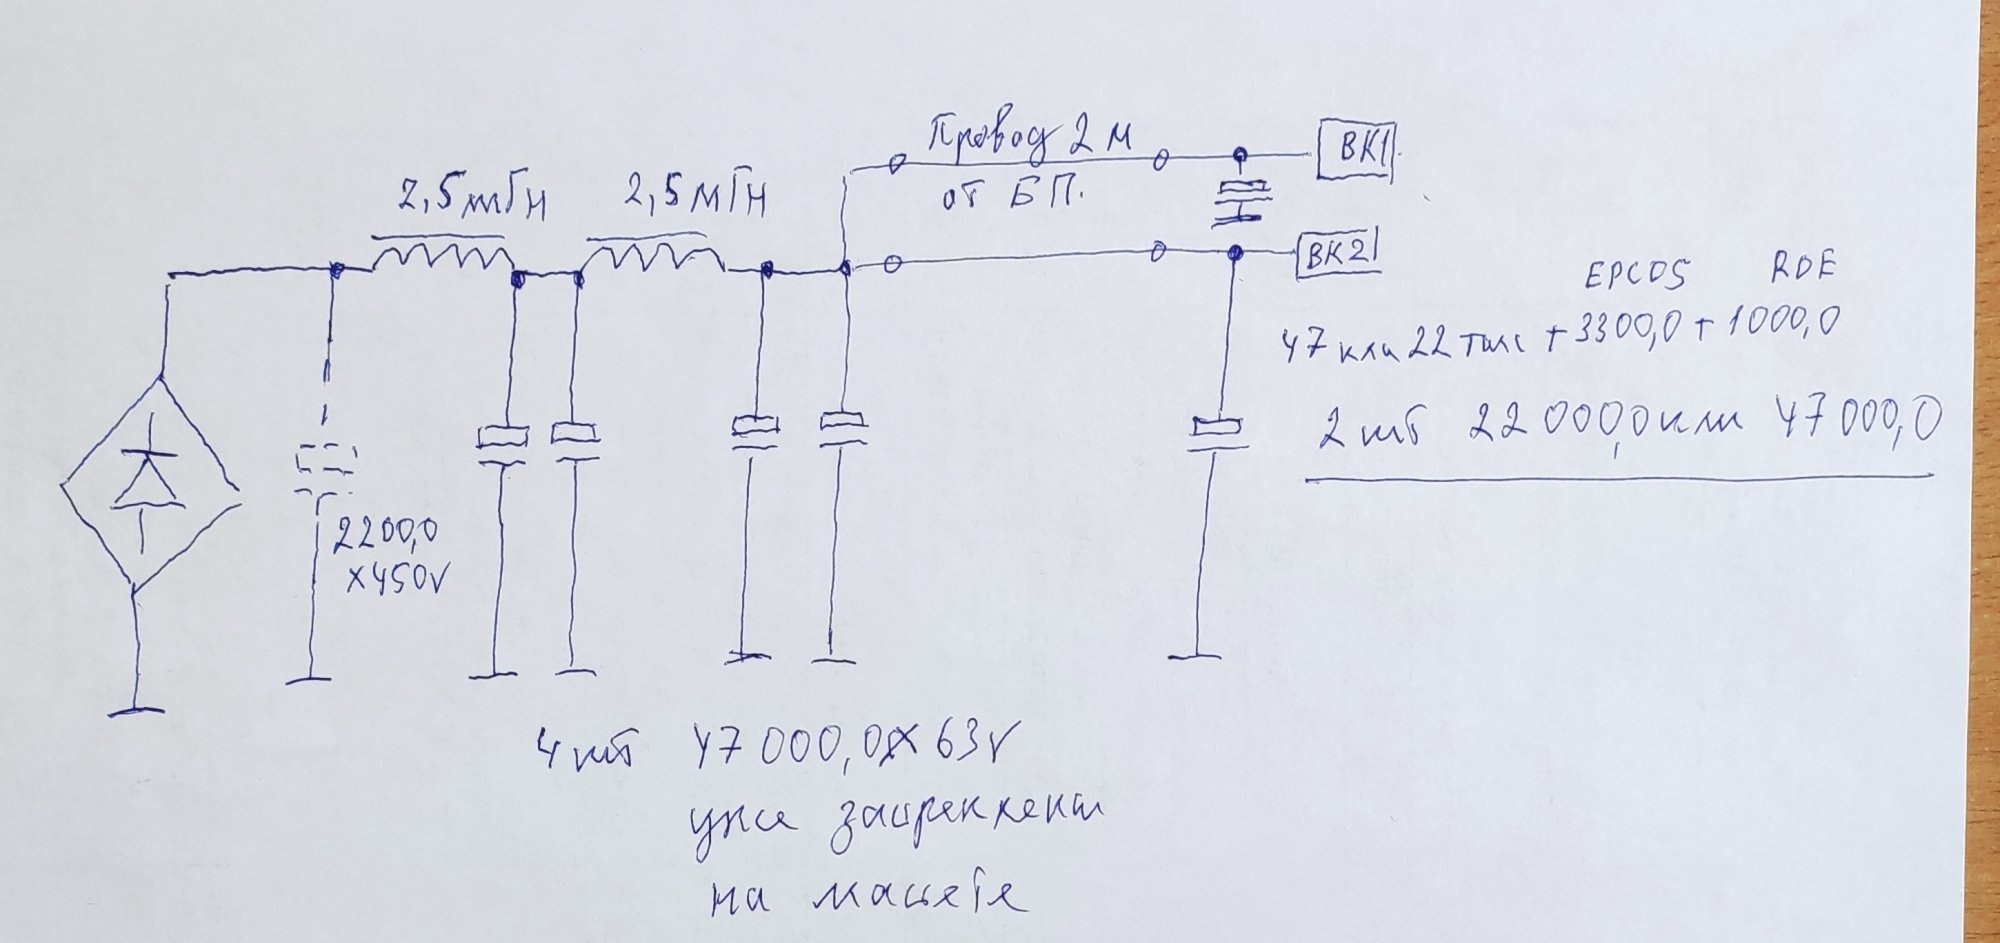 Провод 2 м
от БП.
ВК1
2,5 мГн
2,5 мГн
ВК2
EPCOS RDE
47 или 22 тыс + 3300,0 + 1000,0
2 шт 22 000,0 или 47 000,0
2200,0
x450v
4 шт 47 000,0 x 63v
уже закреплены
на макете